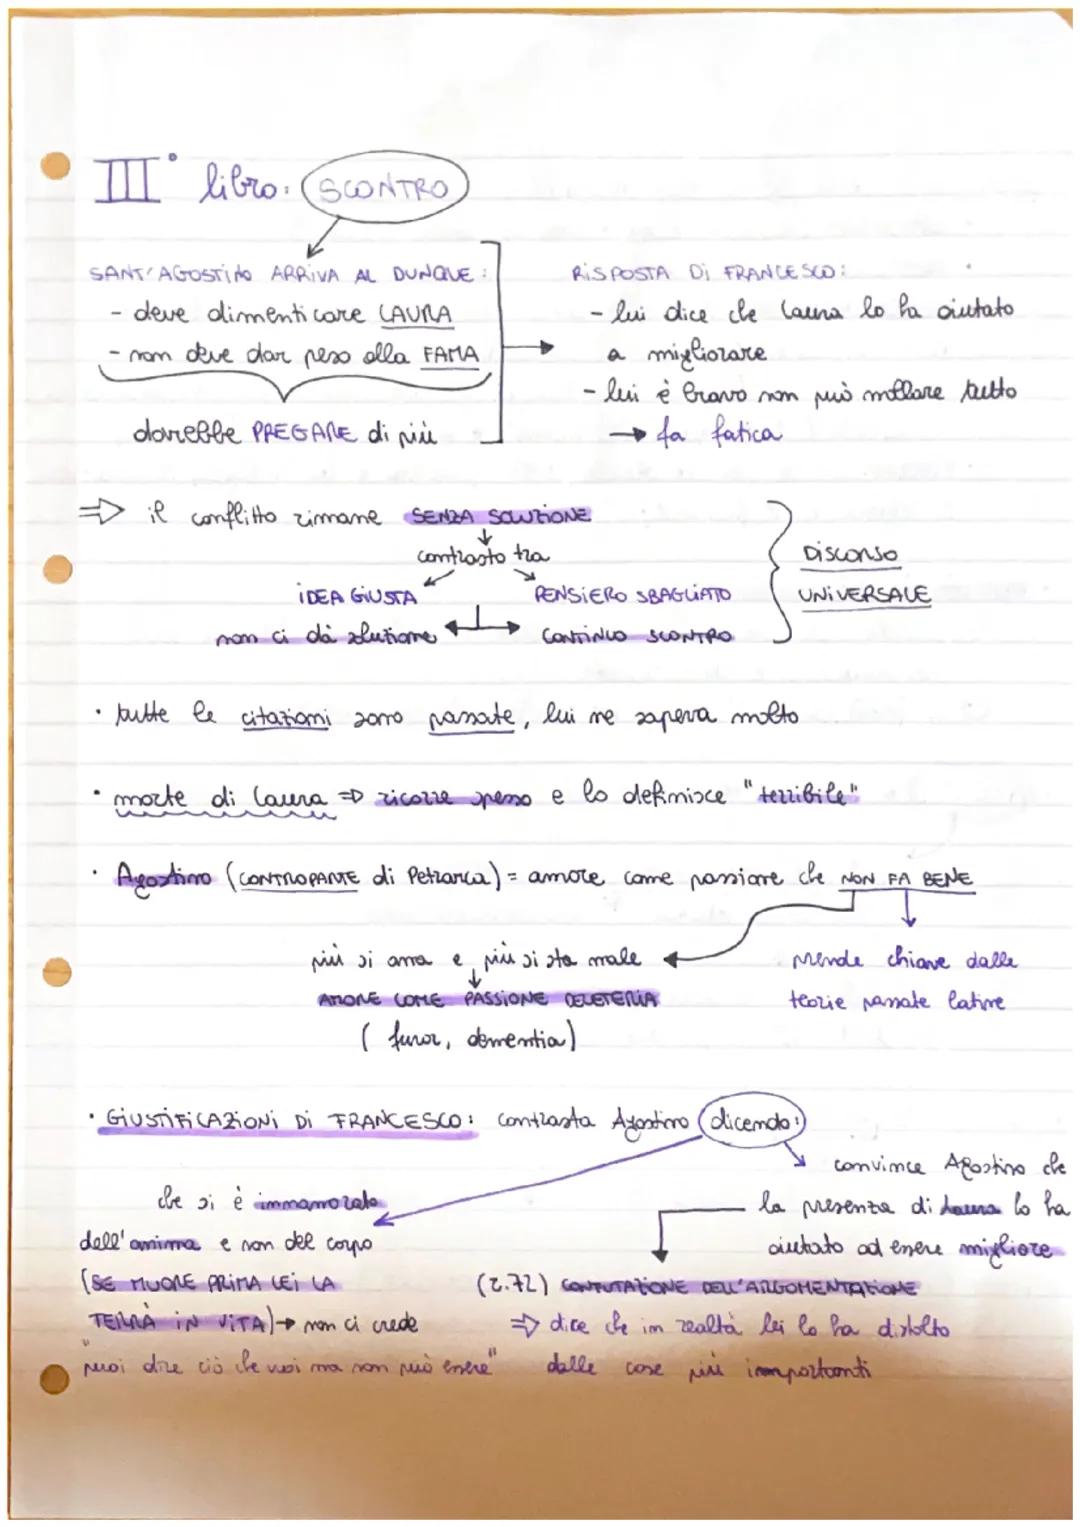 III° libro: SCONTRO
SANT'AGOSTINO ARRIVA AL DUNQUE:
- deve dimenticare LAURA
- non deve dar peso alla FAMA
dovrebbe PREGARE di più
RISPOSTA DI FRANCESCO:
- lui dice che Laura lo ha aiutato
a migliorare
- lui è bravo non può mollare tutto
→ fa fatica
⇒ il conflitto rimane SENZA SOLUZIONE
contrasto tra
IDEA GIUSTA PENSIERO SBAGLIATO
non ci dà soluzione CONTINUO SCONTRO
DISCORSO
UNIVERSALE
· tutte le citazioni sono passate, lui ne sapeva molto
· morte di Laura ⇒ ricorre spesso e lo definisce "terribile"
· Agostino (CONTROPARTE di Petrarca) = amore come passione che NON FA BENE
più si ama e più si sta male
AMORE COME PASSIONE DELETERIA
(furor, dementia)
prende chiave dalle
teorie passate latine
· GIUSTIFICAZIONI DI FRANCESCO: contrasta Agostino dicendo:
che si è innamorato
dell'anima e non del corpo
(SE MUORE PRIMA LEI LA
TERRÀ IN VITA) → non ci crede
"puoi dire ciò che vuoi ma non può essere"
convince Agostino che
la presenza di Laura lo ha
aiutato ad essere migliore
(r.72) CONFUTAZIONE DELL'ARGOMENTAZIONE
⇒ dice che in realtà lei lo ha distolto
dalle cose più importanti